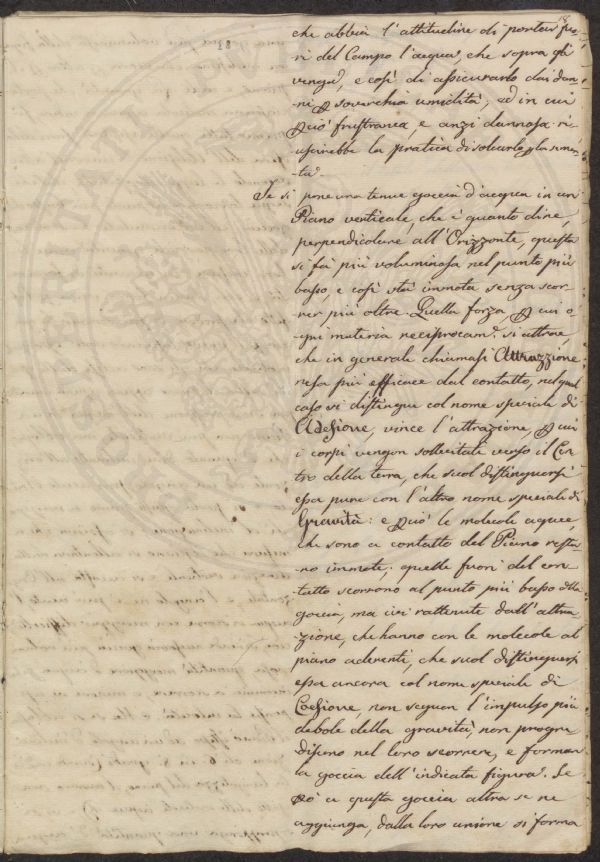 18
che abbia l'attitudine di portar fuo-
ri del Campo l'acqua, che sopra gli
venga, e così di assicurarlo dai dan-
ni p soverchia umidità, ed in cui
pciò frustranea, e anzi dannosa ri-
uscirebbe la pratica di solcarlo p la semen-
ta.
Se si pone una tenue goccia d'acqua in un
Piano verticale, che è quanto dire,
perpendicolare all'Orizzonte, questa
si fà più voluminosa nel punto più
basso, e così stà immota senza scor-
rer più oltre. Quella forza, p cui o-
gni materia reciprocam.e si attrae,
che in generale chiamasi Attrazzione
resa più efficace dal contatto, nel qual
caso si distingue col nome speciale di
Adesione, vince l'attrazione, p cui
i corpi vengon sollecitati verso il Cen-
tro della terra, che suol distinguersi
essa pure con l'altro nome speciale di
Gravità: e pciò le molecole acquee
che sono a contatto del Piano resta-
no immote; quelle fuori del con-
tatto scorrono al punto più basso della
goccia, ma ivi rattenute dall'attra-
zione, che hanno con le molecole al
piano aderenti, che suol distinguersi
essa ancora col nome speciale di
Coesione, non seguon l'impulso più
debole della gravità, non progre-
discono nel loro scorrere, e forman
la goccia dell'indicata figura. Se
pò a questa goccia altra se ne
aggiunga, dalla loro unione si forma